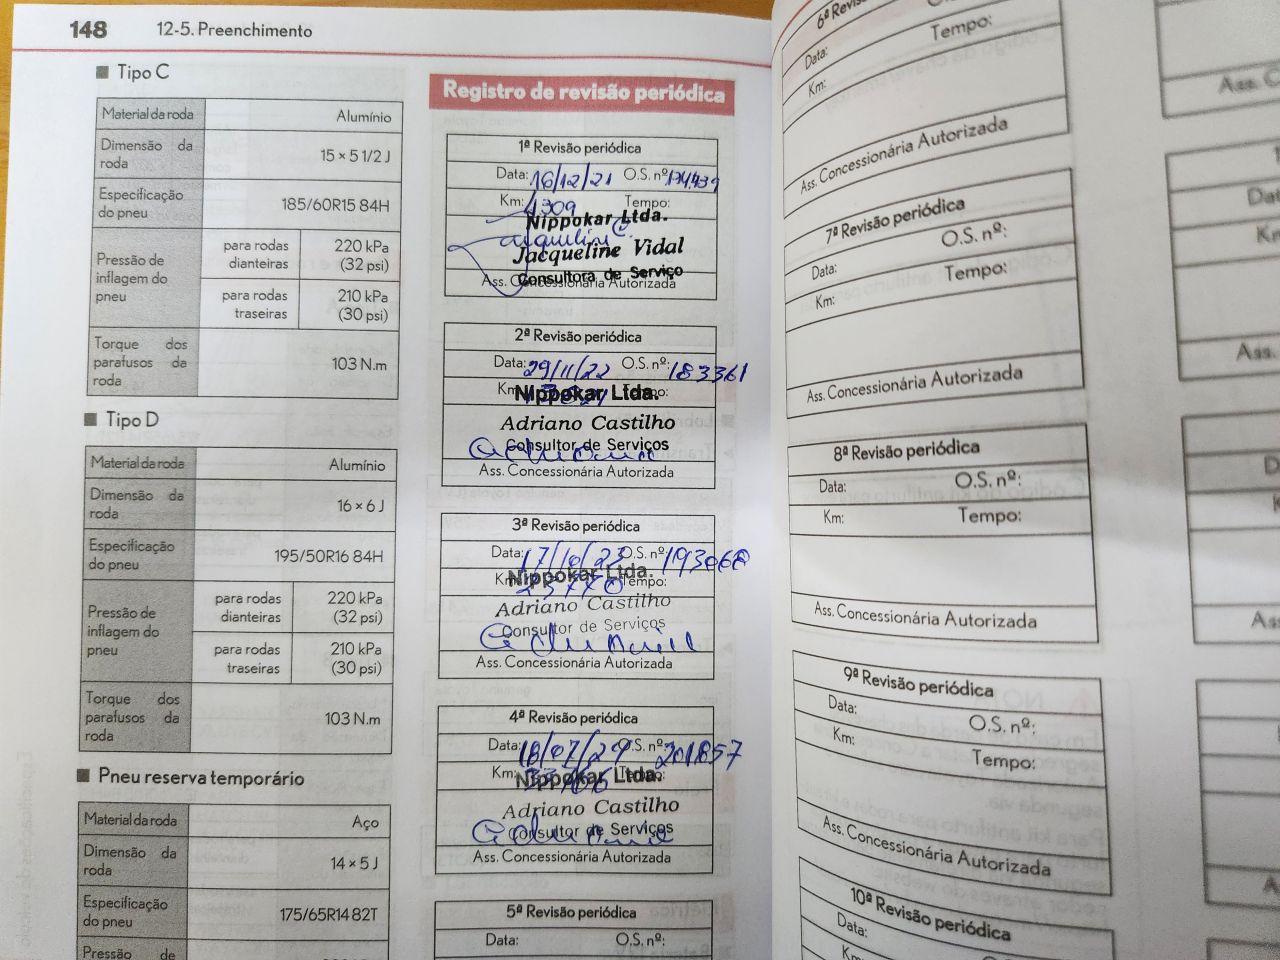 148 12-5. Preenchimento
■ Tipo C
Material da roda Alumínio
Dimensão da
roda 15 × 5 1/2 J
Especificação
do pneu 185/60R15 84H
Pressão de
inflagem do
pneu
para rodas
dianteiras
220 kPa
(32 psi)
para rodas
traseiras
210 kPa
(30 psi)
Torque dos
parafusos da
roda
103 N.m
■ Tipo D
Material da roda Alumínio
Dimensão da
roda 16 × 6 J
Especificação
do pneu 195/50R16 84H
Pressão de
inflagem do
pneu
para rodas
dianteiras
220 kPa
(32 psi)
para rodas
traseiras
210 kPa
(30 psi)
Torque dos
parafusos da
roda
103 N.m
■ Pneu reserva temporário
Material da roda Aço
Dimensão da
roda 14 × 5 J
Especificação
do pneu 175/65R14 82T
Pressão de
Registro de revisão periódica
1ª Revisão periódica
Data: 16/12/21 O.S. nº:
Km: 4309 Tempo:
Nippokar Ltda.
Jacqueline Vidal
Consultora de Serviço
Ass. Concessionária Autorizada
2ª Revisão periódica
Data: 29/11/22 O.S. nº: 183361
Km: Tempo:
Nippokar Ltda.
Adriano Castilho
Consultor de Serviços
Ass. Concessionária Autorizada
3ª Revisão periódica
Data: 17/10/23 O.S. nº: 193068
Km: Tempo:
Nippokar Ltda.
Adriano Castilho
Consultor de Serviços
Ass. Concessionária Autorizada
4ª Revisão periódica
Data: O.S. nº: 201857
Km: Tempo:
Nippokar Ltda.
Adriano Castilho
Consultor de Serviços
Ass. Concessionária Autorizada
5ª Revisão periódica
Data: O.S. nº:
6ª
Data: Tempo:
Km:
Ass. Concessionária Autorizada
7ª Revisão periódica
Data: O.S. nº:
Km: Tempo:
Ass. Concessionária Autorizada
8ª Revisão periódica
Data: O.S. nº:
Km: Tempo:
Ass. Concessionária Autorizada
9ª Revisão periódica
Data: O.S. nº:
Km: Tempo:
Ass. Concessionária Autorizada
10ª Revisão periódica
Data: O.S. nº:
Km: Tempo: